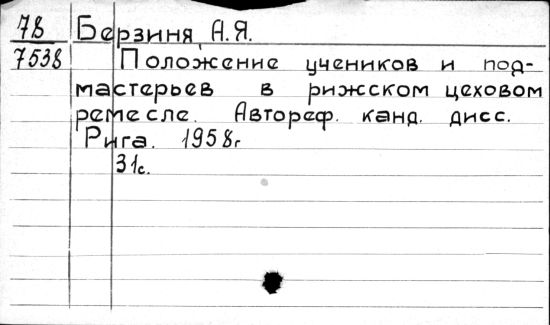 78 Берзиня, А.Я.
7538 Положение учеников и под-
мастерьев в рижском цеховом
ремесле. Автореф. канд. дисс.
Рига. 1958г
31с.